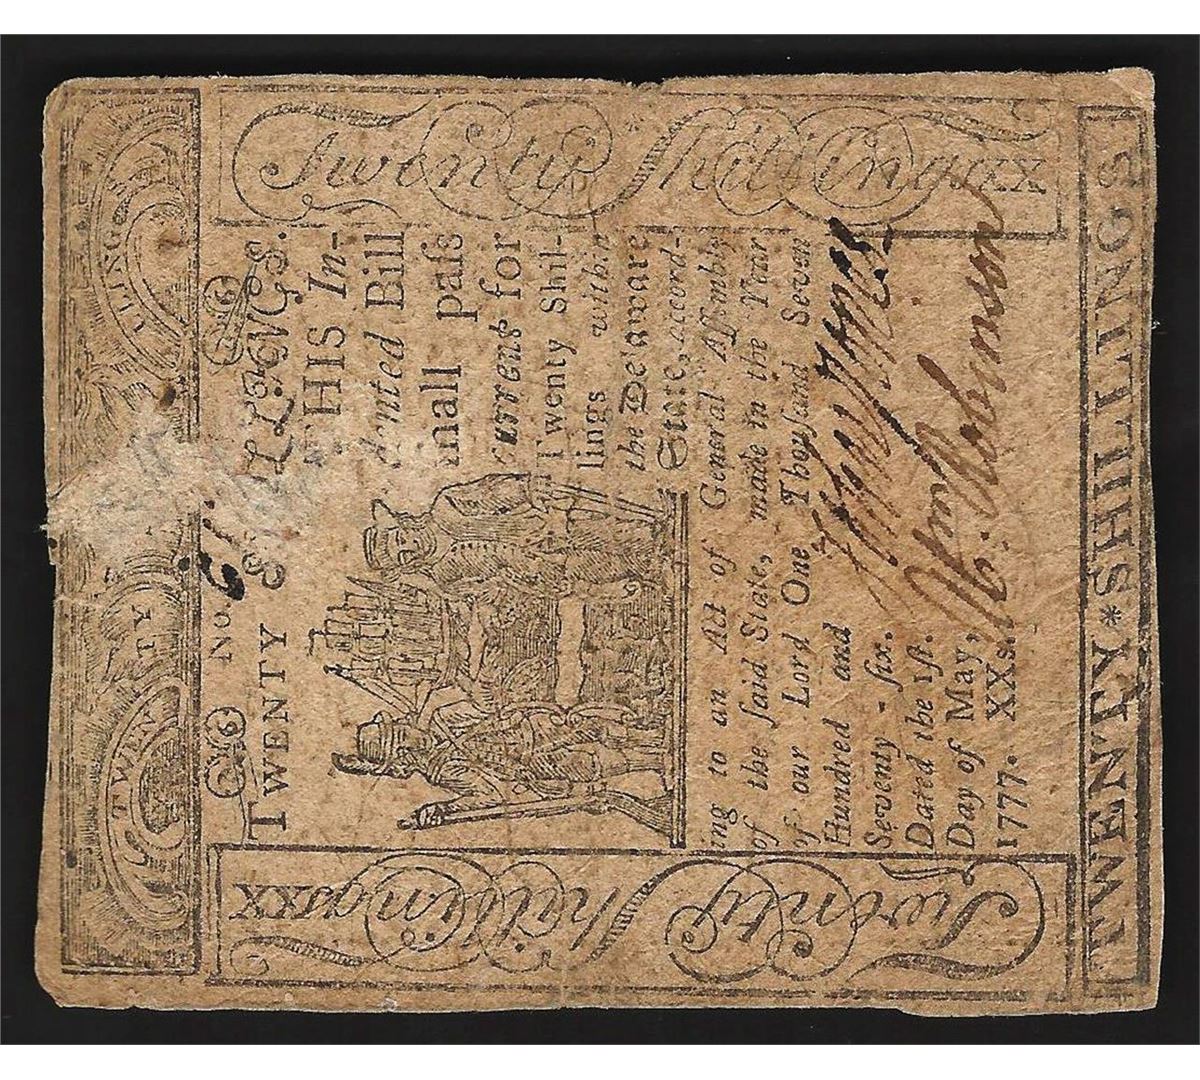 TWEN TY ILLINGS
No. 51
TWENTY SHILLINGS.
THIS In-
dented Bill
shall paſs
current for
Twenty Shil-
lings within
the Delaware
State, accord-
ing to an Act of General Aſſembly
of the ſaid State, made in the Year
of our Lord One Thouſand Seven
Hundred and
Seventy-ſix.
Dated the 1ſt.
Day of May,
1777. XXs.
Robinson
Twenty ShillingsXX
Twenty ShillingsXX
TWENTY*SHILLINGS